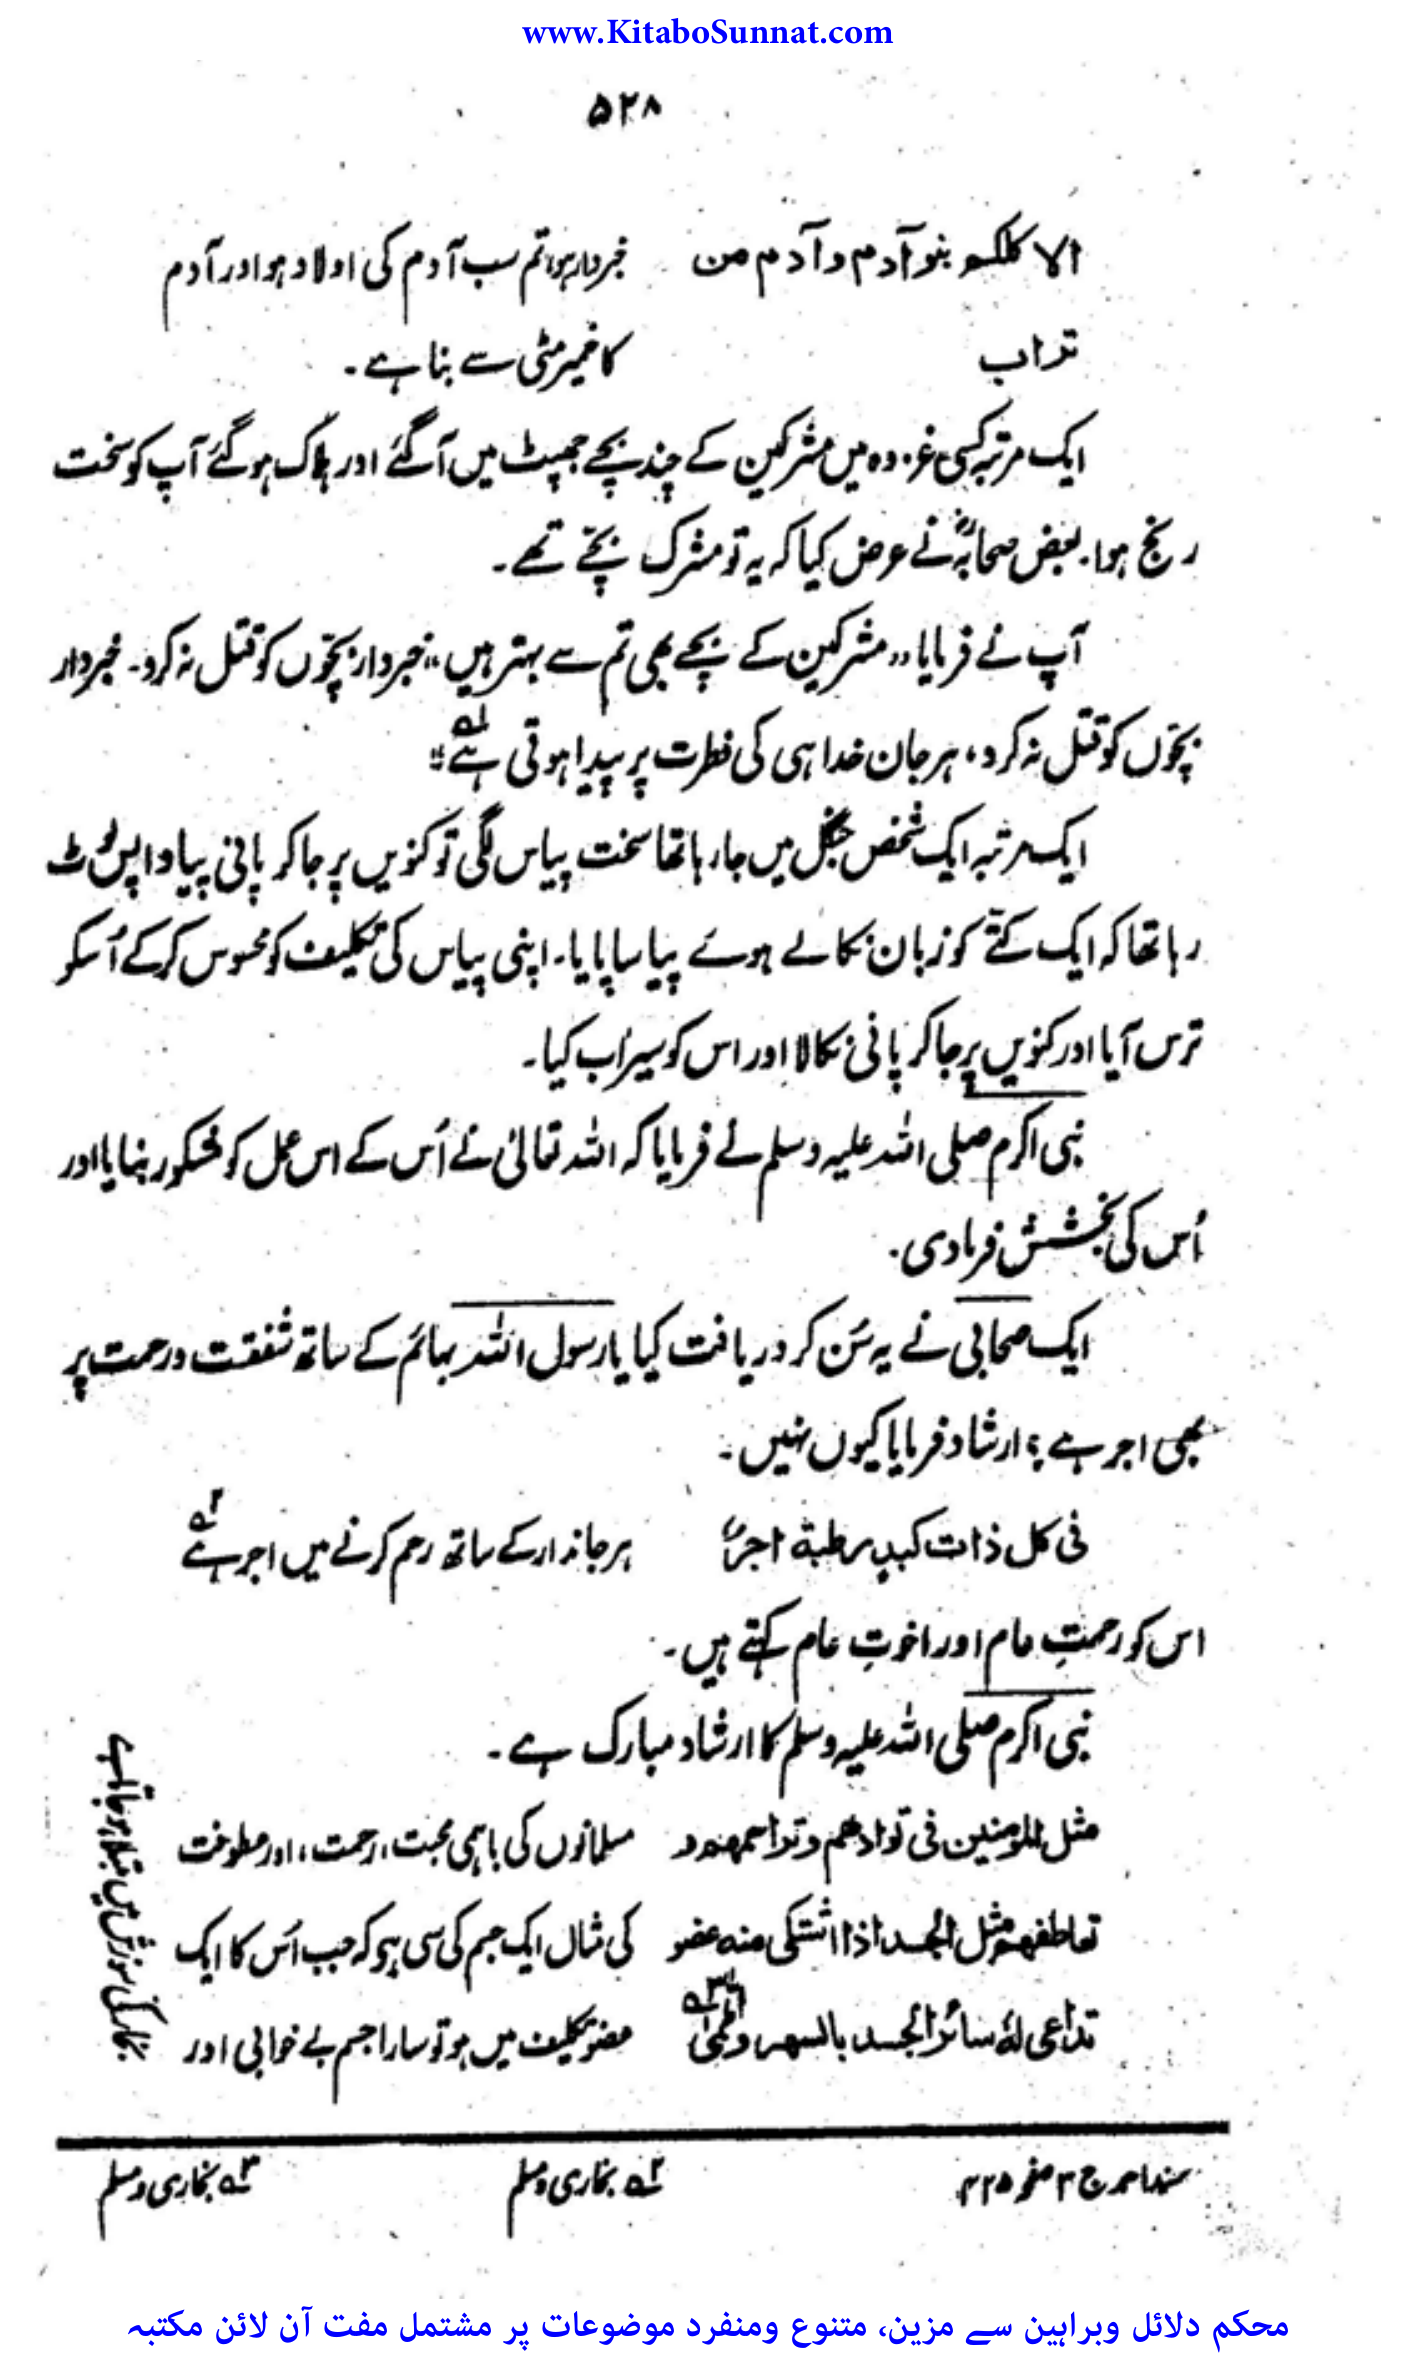 www.KitaboSunnat.com
۵۲۸
الا کلکم بنو آدم و آدم من خبردار ہو، تم سب آدم کی اولاد ہو اور آدم
تراب کا خمیر مٹی سے بنا ہے۔
ایک مرتبہ کسی غزوہ میں مشرکین کے چند بچے جھپٹ میں آگئے اور ہلاک ہوگئے آپ کو سخت
رنج ہوا۔ بعض صحابہؓ نے عرض کیا کہ یہ تو مشرک بچے تھے۔
آپ نے فرمایا ”مشرکین کے بچے بھی تم سے بہتر ہیں“ خبردار بچّوں کو قتل نہ کرو۔ خبردار
بچّوں کو قتل نہ کرو، ہر جان خدا ہی کی فطرت پر پیدا ہوتی ہے“ ۱؎
ایک مرتبہ ایک شخص جنگل میں جارہا تھا سخت پیاس لگی تو کنویں پر جاکر پانی پیا واپس لوٹ
رہا تھا کہ ایک کتّے کو زبان نکالے ہوئے پیاسا پایا۔ اپنی پیاس کی تکلیف کو محسوس کرکے اُسکو
ترس آیا اور کنویں پر جاکر پانی نکالا اور اس کو سیراب کیا۔
نبی اکرم صلی اللہ علیہ وسلم نے فرمایا کہ اللہ تعالیٰ نے اُس کے اس عمل کو مشکور بنایا اور
اُس کی بخشش فرمادی۔
ایک صحابی نے یہ سُن کر دریافت کیا یا رسول اللہ بہائم کے ساتھ شفقت و رحمت پر
بھی اجر ہے؟ ارشاد فرمایا کیوں نہیں۔
فی کل ذات کبدٍ رطبة اجرٌ ہر جاندار کے ساتھ رحم کرنے میں اجر ہے ۲؎
اس کو رحمتِ عام اور اخوتِ عام کہتے ہیں۔
نبی اکرم صلی اللہ علیہ وسلم کا ارشاد مبارک ہے۔
مثل المومنین فی توادھم و تراحمھم و مسلمانوں کی باہمی محبت، رحمت، اور عطوفت
تعاطفھم مثل الجسد اذا اشتکی منه عضو کی مثال ایک جسم کی سی ہے کہ جب اُس کا ایک
تداعی لهٗ سائر الجسد بالسھر والحمیٰ ۳؎ عضو تکلیف میں ہو تو سارا جسم بے خوابی اور
بخار کی سوزش میں مبتلا ہوجاتا ہے
مسند احمد ج ۳ صفحہ ۴۳۵ ۲؎ بخاری و مسلم ۳؎ بخاری و مسلم
محکم دلائل وبراہین سے مزین، متنوع ومنفرد موضوعات پر مشتمل مفت آن لائن مکتبہ